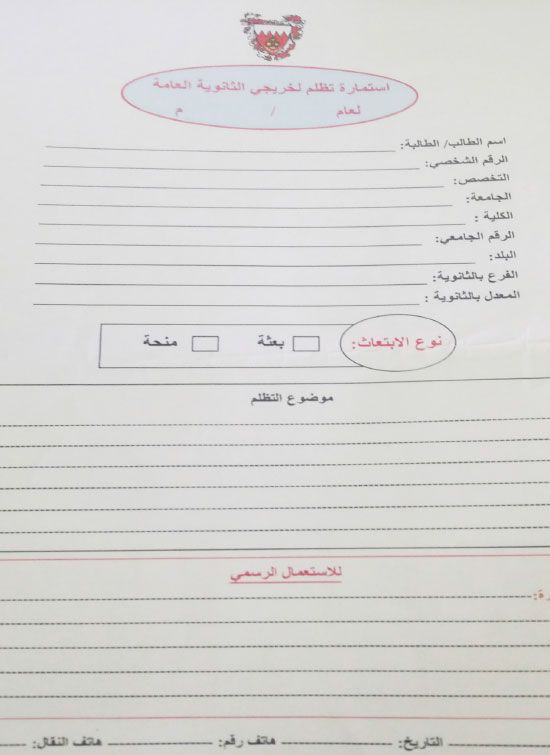 استمارة تظلم لخريجي الثانوية العامة
لعام / م
اسم الطالب/ الطالبة:
الرقم الشخصي:
التخصص:
الجامعة:
الكلية :
الرقم الجامعي:
البلد:
الفرع بالثانوية:
المعدل بالثانوية :
نوع الابتعاث: بعثة منحة
موضوع التظلم
للاستعمال الرسمي
التاريخ: هاتف رقم: هاتف النقال: